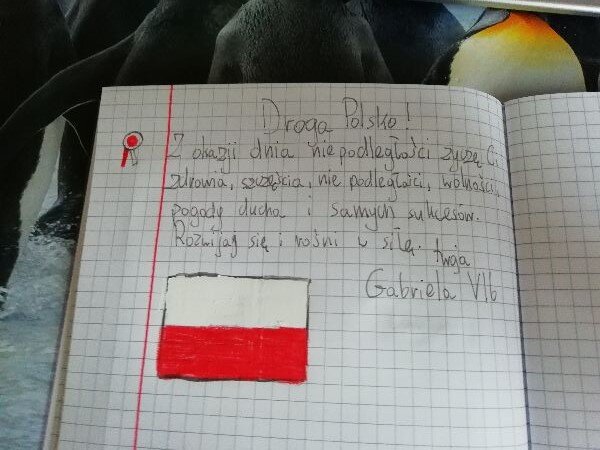 Droga Polsko!
Z okazji dnia nie podległości życzę Ci,
zdrowia, szczęścia, nie podległości, wolności,
pogody ducha i samych sukcesów.
Rozwijaj się i rośni w siłę. twoja
Gabriela VIb